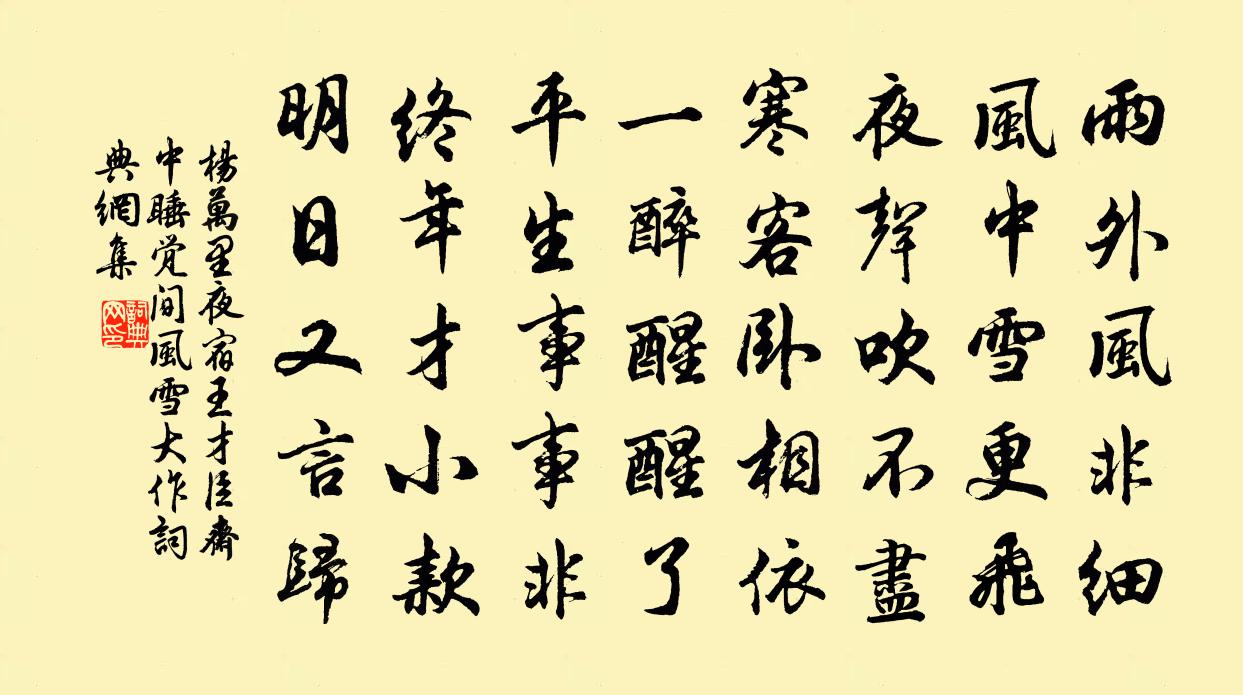 雨外風非細
風中雪更飛
夜聲吹不盡
寒客卧相依
一醉醒醒了
平生事事非
終年才小款
明日又言歸
楊萬里夜宿王才臣齋
中睡覚聞風雪大作詞
典網集
詞典
网印